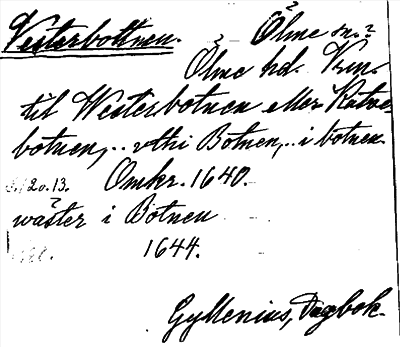 Vesterbottnen. Ölme sn.?
Ölme hd. Vrm.
til Westerbotnen eller Katve
botnen,.. vthi Botnen,.. i botnen.
20.13. Omkr. 1640.
wäster i Botnen
1644.
Gyllenius, Dagbok.